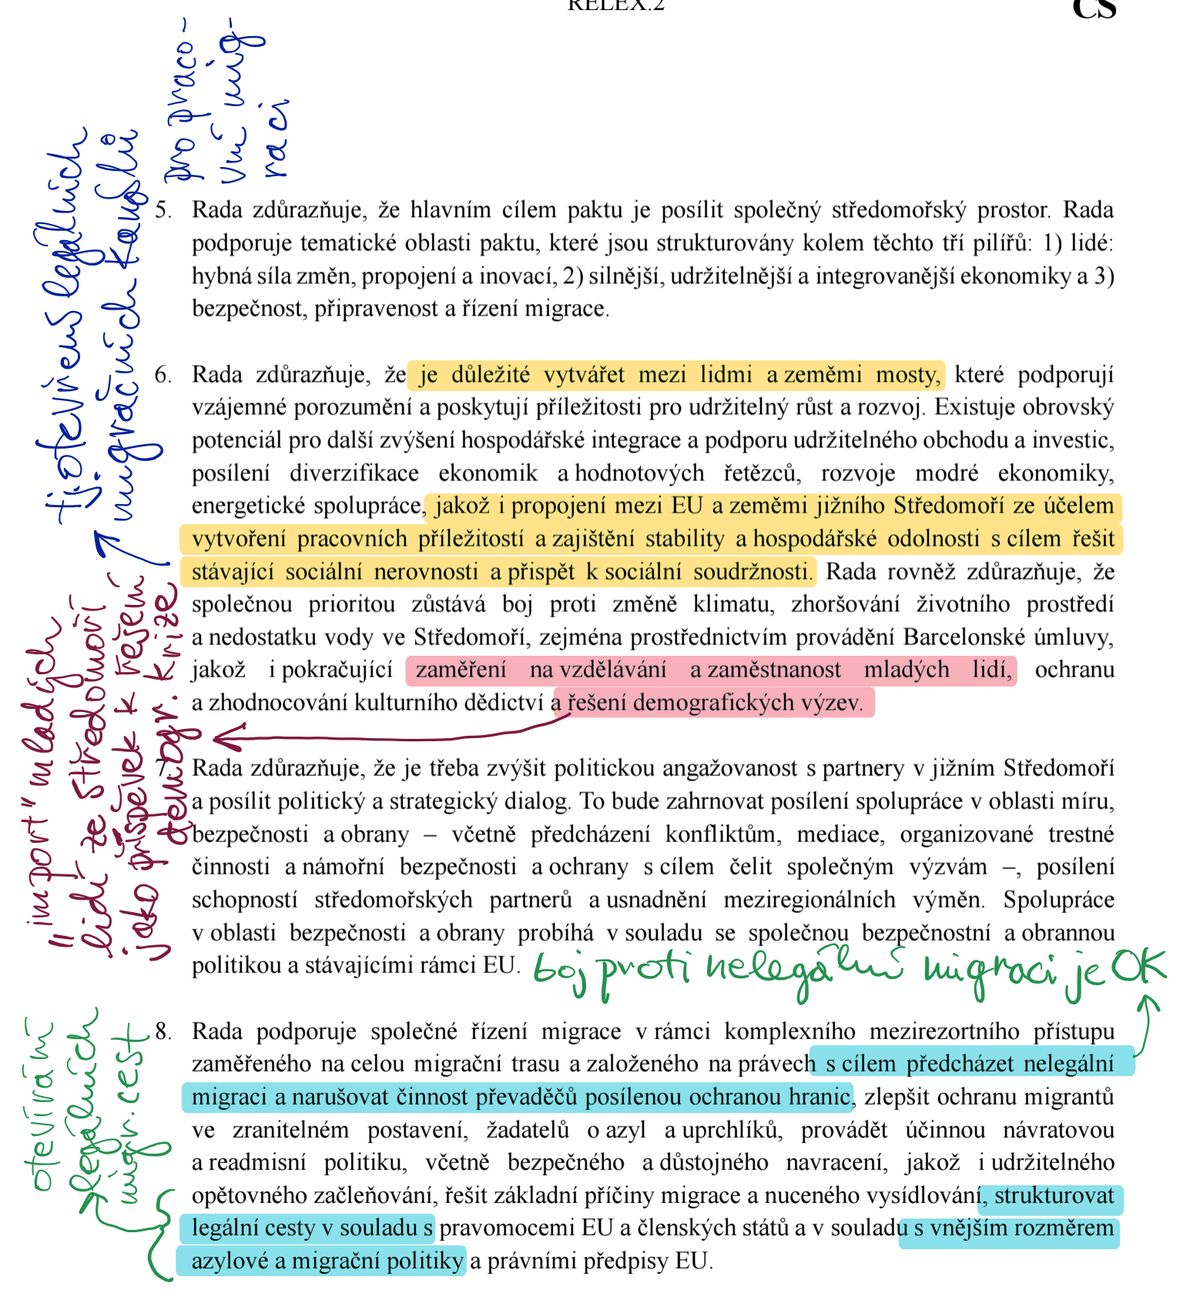 RELEX.2 CS
pro praco-
vní mig-
raci
tj. otevření legálních
migračních kanálů
5. Rada zdůrazňuje, že hlavním cílem paktu je posílit společný středomořský prostor. Rada
podporuje tematické oblasti paktu, které jsou strukturovány kolem těchto tří pilířů: 1) lidé:
hybná síla změn, propojení a inovací, 2) silnější, udržitelnější a integrovanější ekonomiky a 3)
bezpečnost, připravenost a řízení migrace.
6. Rada zdůrazňuje, že je důležité vytvářet mezi lidmi a zeměmi mosty, které podporují
vzájemné porozumění a poskytují příležitosti pro udržitelný růst a rozvoj. Existuje obrovský
potenciál pro další zvýšení hospodářské integrace a podporu udržitelného obchodu a investic,
posílení diverzifikace ekonomik a hodnotových řetězců, rozvoje modré ekonomiky,
energetické spolupráce, jakož i propojení mezi EU a zeměmi jižního Středomoří ze účelem
vytvoření pracovních příležitostí a zajištění stability a hospodářské odolnosti s cílem řešit
stávající sociální nerovnosti a přispět k sociální soudržnosti. Rada rovněž zdůrazňuje, že
společnou prioritou zůstává boj proti změně klimatu, zhoršování životního prostředí
a nedostatku vody ve Středomoří, zejména prostřednictvím provádění Barcelonské úmluvy,
jakož i pokračující zaměření na vzdělávání a zaměstnanost mladých lidí, ochranu
a zhodnocování kulturního dědictví a řešení demografických výzev.
"import" mladých
lidí ze Středomoří
jako příspěvek k řešení
demogr. krize
7. Rada zdůrazňuje, že je třeba zvýšit politickou angažovanost s partnery v jižním Středomoří
a posílit politický a strategický dialog. To bude zahrnovat posílení spolupráce v oblasti míru,
bezpečnosti a obrany – včetně předcházení konfliktům, mediace, organizované trestné
činnosti a námořní bezpečnosti a ochrany s cílem čelit společným výzvám –, posílení
schopností středomořských partnerů a usnadnění meziregionálních výměn. Spolupráce
v oblasti bezpečnosti a obrany probíhá v souladu se společnou bezpečnostní a obrannou
politikou a stávajícími rámci EU. boj proti nelegální migraci je OK
8. Rada podporuje společné řízení migrace v rámci komplexního mezirezortního přístupu
zaměřeného na celou migrační trasu a založeného na právech s cílem předcházet nelegální
migraci a narušovat činnost převaděčů posílenou ochranou hranic, zlepšit ochranu migrantů
ve zranitelném postavení, žadatelů o azyl a uprchlíků, provádět účinnou návratovou
a readmisní politiku, včetně bezpečného a důstojného navracení, jakož i udržitelného
opětovného začleňování, řešit základní příčiny migrace a nuceného vysídlování, strukturovat
legální cesty v souladu s pravomocemi EU a členských států a v souladu s vnějším rozměrem
azylové a migrační politiky a právními předpisy EU.
otevírání
legálních
migr. cest